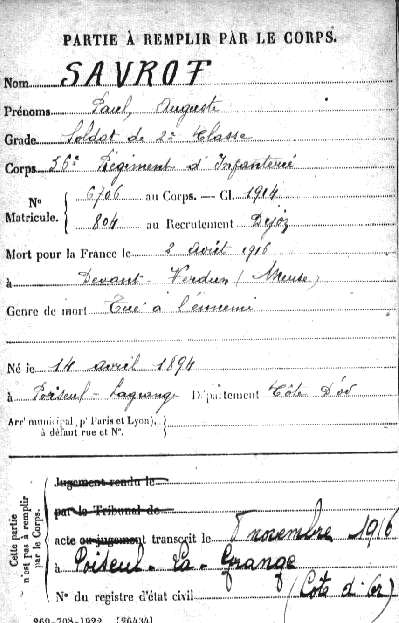 PARTIE À REMPLIR PAR LE CORPS.
Nom SAVROT
Prénoms Paul, Auguste
Grade Soldat de 2e Classe
Corps 56e Régiment d'Infanterie
N° Matricule. 6706 au Corps. — Cl. 1914
804 au Recrutement Dijon
Mort pour la France le 2 août 1916
à Devant Verdun (Meuse)
Genre de mort Tué à l'ennemi
Né le 14 avril 1894
à Poiseul-Lagrange Département Côte D'or
Arr' municipal (p' Paris et Lyon), à défaut rue et N°.
Cette partie n'est pas à remplir par le Corps.
Jugement rendu le
par le Tribunal de
acte ou jugement transcrit le novembre 1916
à Poiseul-La-Grange
N° du registre d'état civil (Côte d'Or)
269-708-1922. [26434]